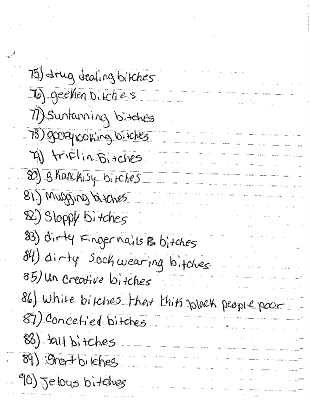 75) drug dealing bitches
76) geeken bitches
77) suntanning bitches
78) goozy looking bitches
79) triflin Bitches
80) skankisy bitches
81) Mugging bitches
82) Sloppy bitches
83) dirty fingernails B. bitches
84) dirty Sock wearing bitches
85) un creative bitches
86) white bitches that think black people poor
87) Concetied bitches
88) tall bitches
89) Short bitches
90) Jelous bitches